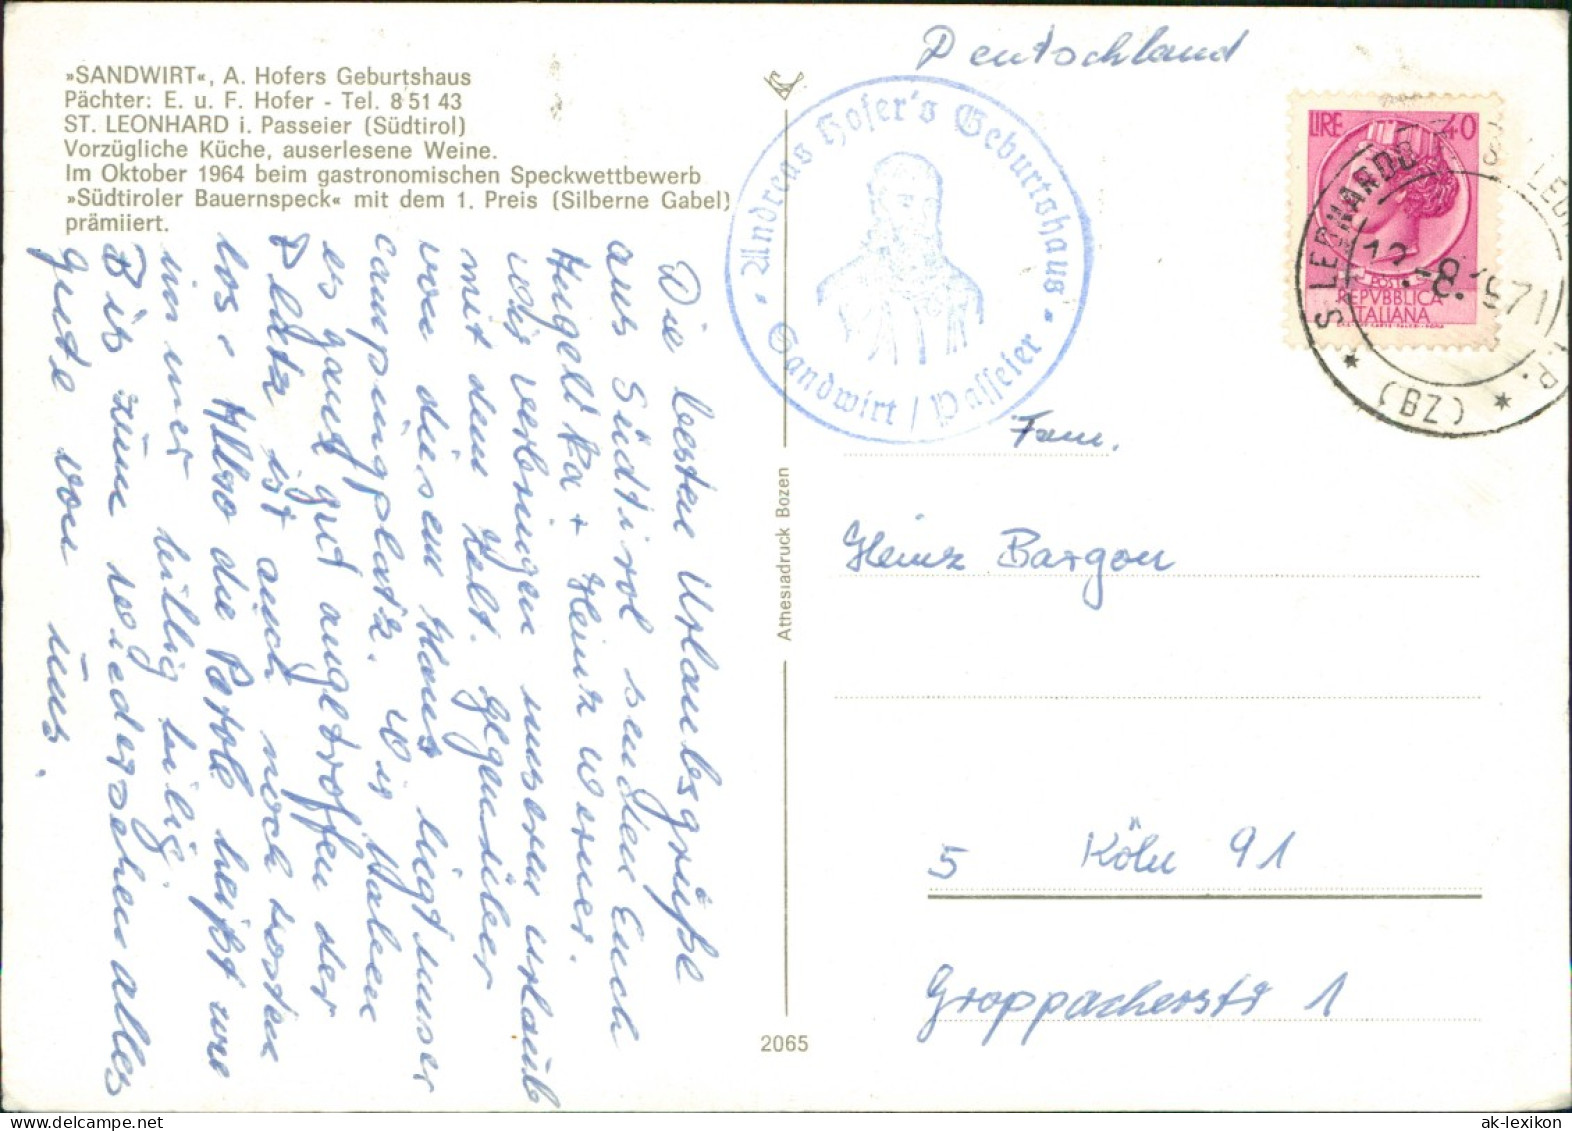 »SANDWIRT«, A. Hofers Geburtshaus
Pächter: E. u. F. Hofer - Tel. 8 51 43
ST. LEONHARD i. Passeier (Südtirol)
Vorzügliche Küche, auserlesene Weine.
Im Oktober 1964 beim gastronomischen Speckwettbewerb
»Südtiroler Bauernspeck« mit dem 1. Preis (Silberne Gabel)
prämiiert.
Die besten Urlaubsgrüße
aus Südtirol senden Euch
Hugelika + Heinz Werner.
Wir verbringen unseren Urlaub
mit dem Zelt. Gegenüber
von diesem Haus liegt unser
Campingplatz. Wir haben
es ganz gut angetroffen der
Platz ist auch noch kosten
los. Also die Parole heißt wie
immer billig billig.
Bis zum Wiedersehen alles
gute von uns.
Deutschland
Andreas Hofer's Geburtshaus
Sandwirt / Passeier
LIRE 40
POSTE
REPVBBLICA
ITALIANA
S. LEONARDO
12.-8.1971
(BZ)
Fam.
Heinz Bargon
5 Köln 91
Groppacherstr 1
Athesiadruck Bozen
2065
ak-lexikon